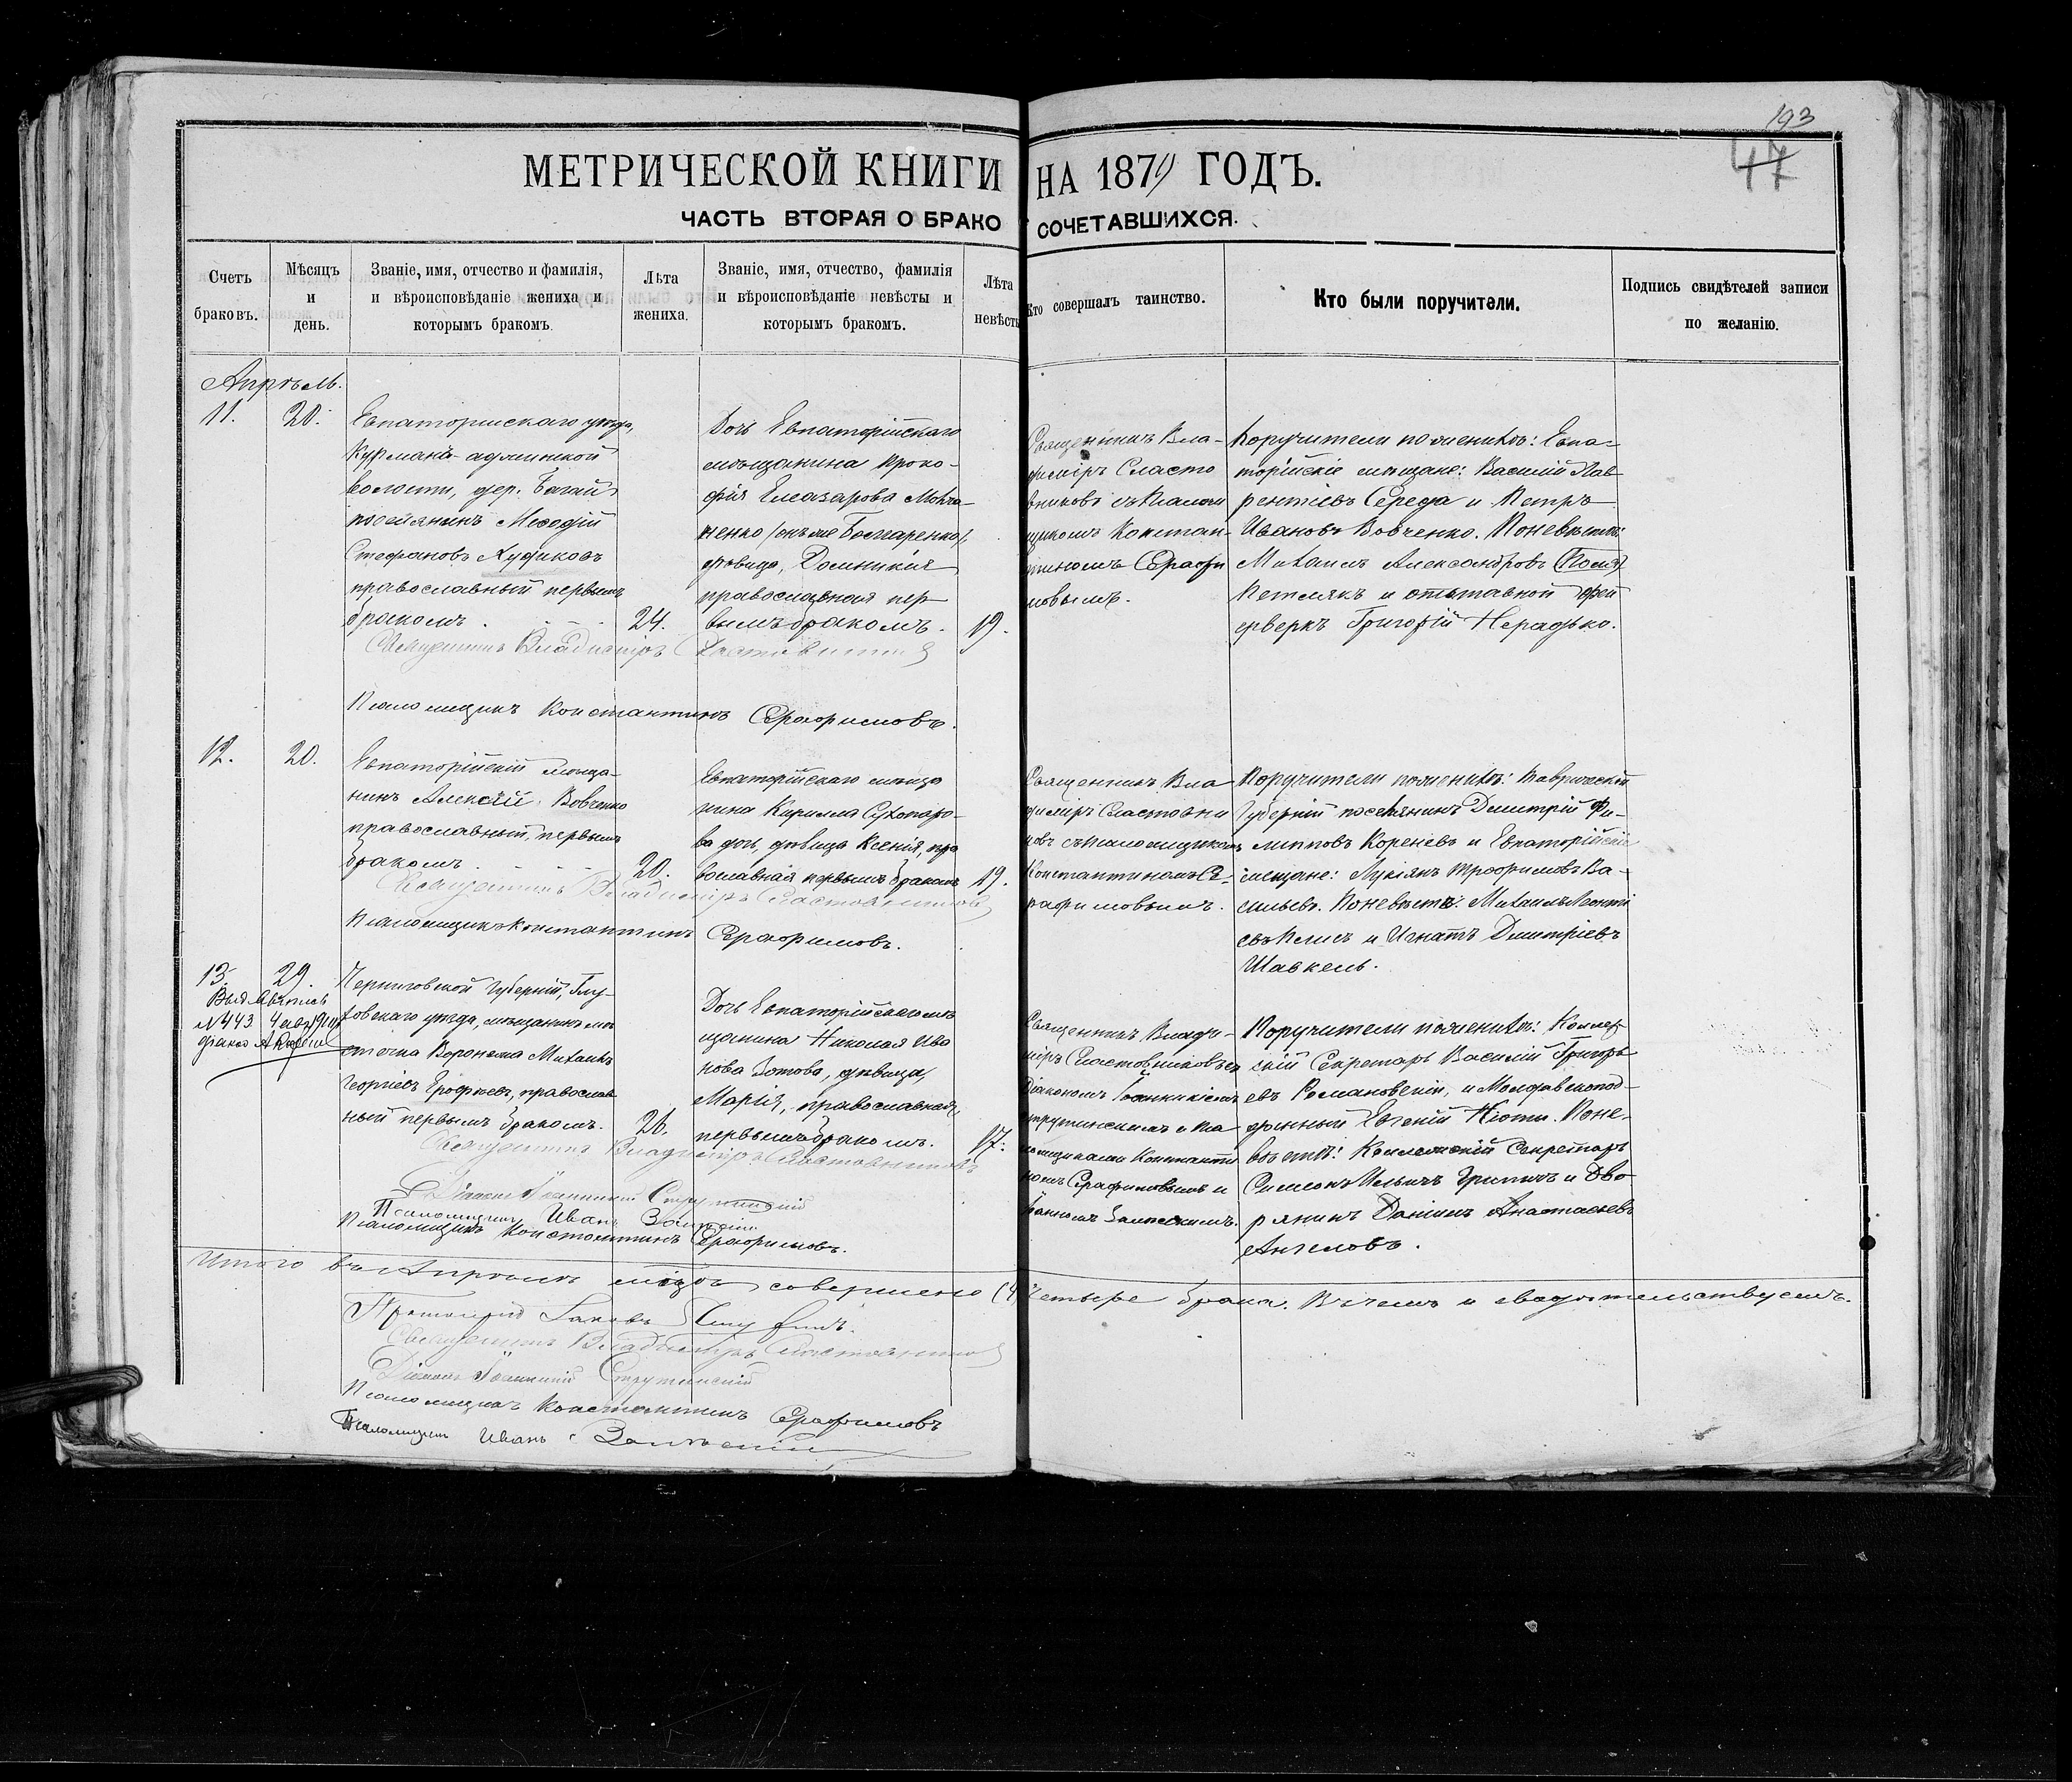 193
47
МЕТРИЧЕСКОЙ КНИГИ НА 1879 ГОДЪ.
ЧАСТЬ ВТОРАЯ О БРАКОСОЧЕТАВШИХСЯ.
Счетъ браковъ.
Мѣсяцъ и день.
Званіе, имя, отчество и фамилія,
и вѣроисповѣданіе жениха и
которымъ бракомъ.
Лѣта жениха.
Званіе, имя, отчество, фамилія
и вѣроисповѣданіе невѣсты и
которымъ бракомъ.
Лѣта невѣсты
Кто совершалъ таинство.
Кто были поручители.
Подпись свидѣтелей записи
по желанію.
Апрѣль.
11.
20.
Евпаторійскаго уѣзда,
Курманъ-аджинской
волости, дер. Багай
поселянинъ Меѳодій
Стефановъ
православный первымъ
бракомъ.
24.
Дочь Евпаторійскаго
мѣщанина Проко-
фія Елеазарова
дѣвица, Домникія
православная пер-
вымъ бракомъ.
19.
Священникъ Вла-
диміръ Сласто
вниковъ съ Псалом
щикомъ Констан-
тиномъ Серафи
мовымъ.
Поручители по женихѣ: Евпа-
торійскіе мѣщане: Василій Лав
рентіевъ Середа и Петръ
Ивановъ Вовченко. По невѣстѣ:
Михаилъ Александровъ
и отставной фей
ерверкъ Григорій
Священникъ Владиміръ Сластовниковъ
Псаломщикъ Константинъ Серафимовъ.
12.
20.
Евпаторійскій мѣща-
нинъ Алексѣй Вовченко
православный, первымъ
бракомъ.
20.
Евпаторійскаго мѣща
нина Кирилла Сухопаро-
ва дочь, дѣвица Ксенія, пра
вославная первымъ бракомъ
19.
Священникъ Вла
диміръ Сластовни
ковъ съ Псаломщикомъ
Константиномъ Се-
рафимовымъ.
Поручители по женихѣ: Таврической
Губерніи поселянинъ Дмитрій Фи-
липповъ Кореневъ и Евпаторійскіе
мѣщане: Лукіянъ Трофимовъ Ва-
сильевъ. По невѣстѣ: Михаилъ Леонтi
евъ и Игнатъ Дмитріевъ
Шавкель.
Священникъ Владиміръ Сластовниковъ
Псаломщикъ Константинъ Серафимовъ.
13.
29.
№ 443
Черниговской Губерніи, Глу-
ховскаго уѣзда, мѣщанинъ мѣ
стечка Воронежа Михаилъ
Георгіевъ Ерофѣевъ, православ
ный первымъ бракомъ.
26.
Дочь Евпаторійскаго мѣ
щанина Николая Ива
нова Зотова, дѣвица,
Марія, православная,
первымъ бракомъ.
17.
Священникъ Влади-
міръ Сластовниковъ съ
Діакономъ Іоанникіемъ
Струтинскимъ и Пса
ломщиками Константи
номъ Серафимовымъ и
Поручители по женихѣ: Коллеж
скій Секретарь Василій Григорь
евъ Романовскій, и Молдавскопод-
данный Евгеній По не-
вѣстѣ: Коллежскій Секретарь
Симеонъ Ильичъ и Дво
рянинъ Даніилъ Анастасьевъ
Ангеловъ.
Священникъ Владиміръ Сластовниковъ
Діаконъ Іоанникій Струтинскій
Псаломщикъ Иванъ
Псаломщикъ Константинъ Серафимовъ.
Итого въ Апрѣлѣ мѣсяцѣ совершено (4) Четыре брака. В чемъ и свидѣтельствуемъ.
Протоіерей Іаковъ
Священникъ Владиміръ Сластовниковъ
Діаконъ Іоанникій Струтинскій
Псаломщикъ Константинъ Серафимовъ
Псаломщикъ Иванъ